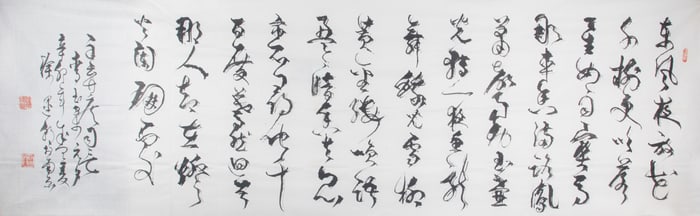 東風夜放花
千樹更吹落
星如雨寶馬
雕車香滿路鳳
簫聲動玉壺
光轉一夜魚龍
舞蛾兒雪柳
黃金縷笑語
盈盈暗香去眾
裏尋他千
百度驀然回首
那人卻在燈
火闌珊處
青玉案元夕
辛卯年